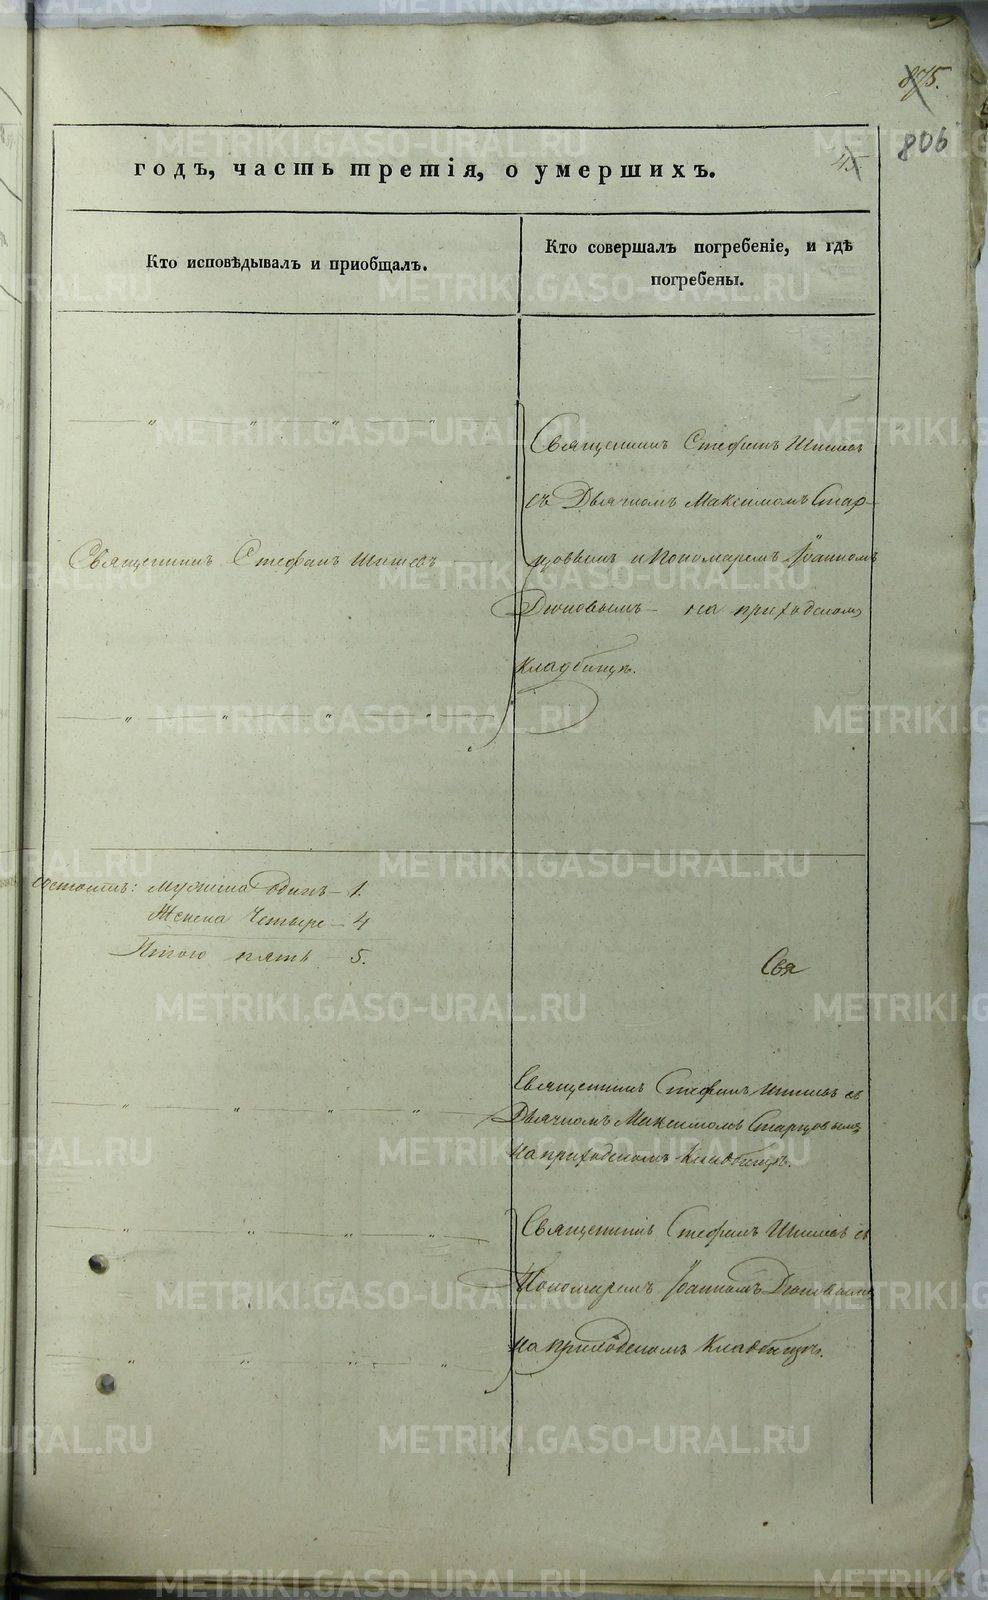 875.
806
45
годъ, часть третія, о умершихъ.
Кто исповѣдывалъ и приобщалъ.
Кто совершалъ погребеніе, и гдѣ
погребены.
Священникъ Стефанъ Шишевъ
съ Дьячкомъ Максимомъ Стар-
цовымъ и Пономаремъ Іоанномъ
Священникъ Стефанъ Шишевъ
Дюковымъ на приходскомъ
кладбищѣ.
состоитъ: Мужеска Одинъ — 1.
Женска Четыре — 4
Итого пять — 5.
Свя
Священникъ Стефанъ Шишевъ съ
Дьячкомъ Максимомъ Старцовымъ
на приходскомъ Кладбищѣ.
Священникъ Стефанъ Шишевъ съ
Пономаремъ Іоанномъ Дюковымъ
на приходскомъ Кладбищѣ.
METRIKI.GASO-URAL.RU